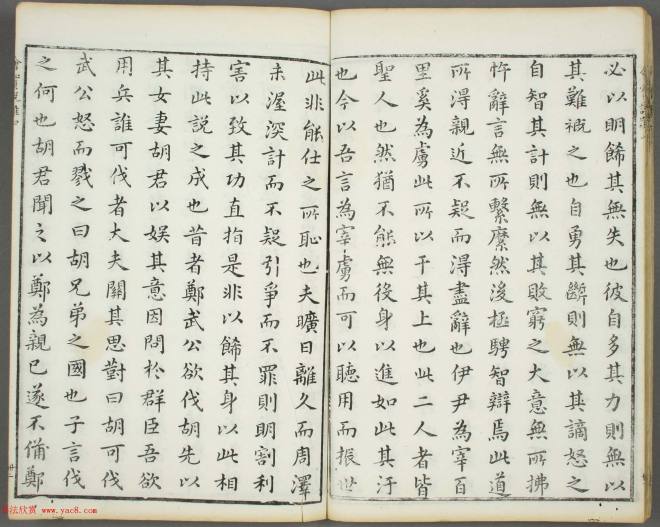 必以明飾其無失也彼自多其力則無以
其難概之也自勇其斷則無以其謫怒之
自智其計則無以其敗窮之大意無所拂
忤辭言無所繫縻然後極騁智辯焉此道
所得親近不疑而得盡辭也伊尹為宰百
里奚為虜此所以干其上也此二人者皆
聖人也然猶不能無役身以進如此其汙
也今以吾言為宰虜而可以聽用而振世
此非能仕之所恥也夫曠日離久而周澤
未渥深計而不疑引爭而不罪則明割利
害以致其功直指是非以飾其身以此相
持此説之成也昔者鄭武公欲伐胡先以
其女妻胡君以娛其意因問於群臣吾欲
用兵誰可伐者大夫關其思對曰胡可伐
武公怒而戮之曰胡兄弟之國也子言伐
之何也胡君聞之以鄭為親已遂不備鄭
书法欣赏
www.yac8.com